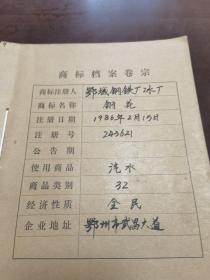 商标档案卷宗
商标注册人 鄂城钢铁厂冰厂
商标名称 钢花
注册日期 1986年2月15日
注册号 243621
公告期
使用商品 汽水
商品类别 32
经济性质 全民
企业地址 鄂州市武昌大道